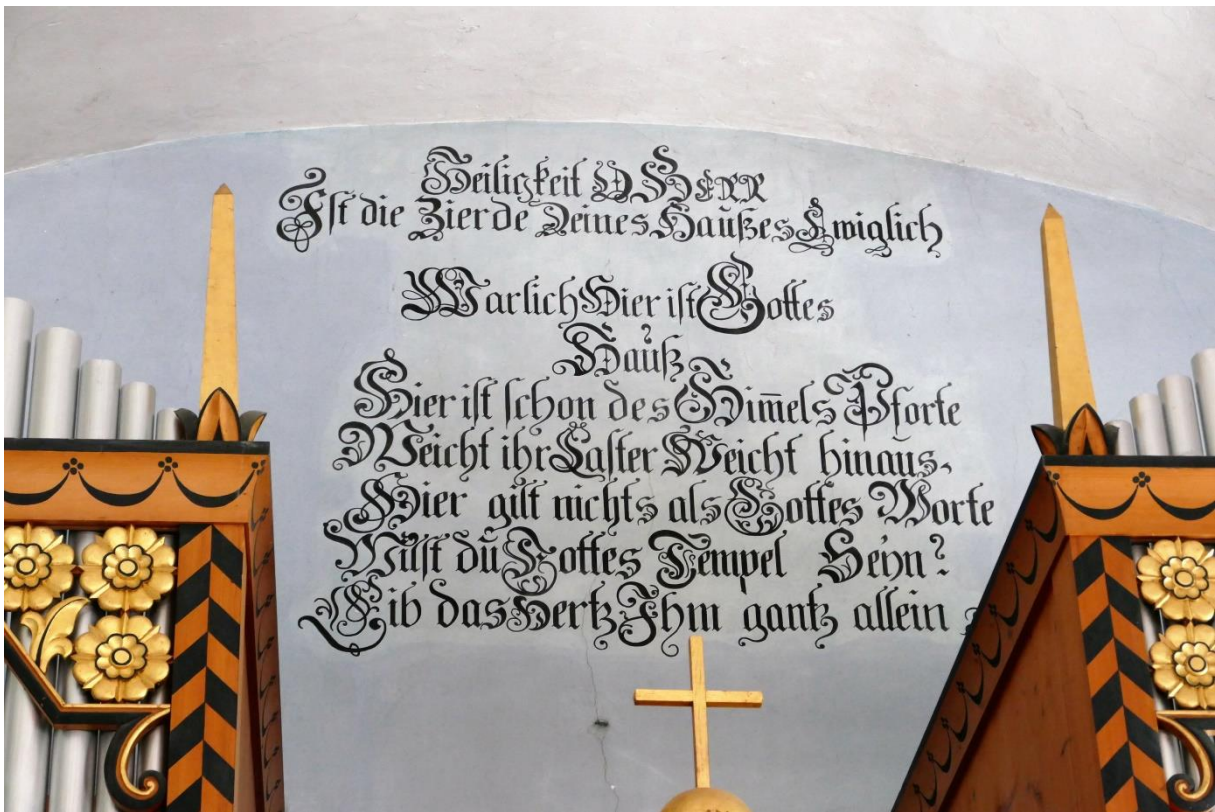 Heiligkeit O HERR
Ist die Zierde Deines Haußes Ewiglich
Warlich Hier ist Gottes
Hauß
Hier ist schon des Him̅els Pforte
Weicht ihr Laster Weicht hinaus,
Hier gilt nichts als Gottes Worte
Wilst dŭ Gottes Tempel Seÿn?
Gib das Hertz Ihm gantz allein